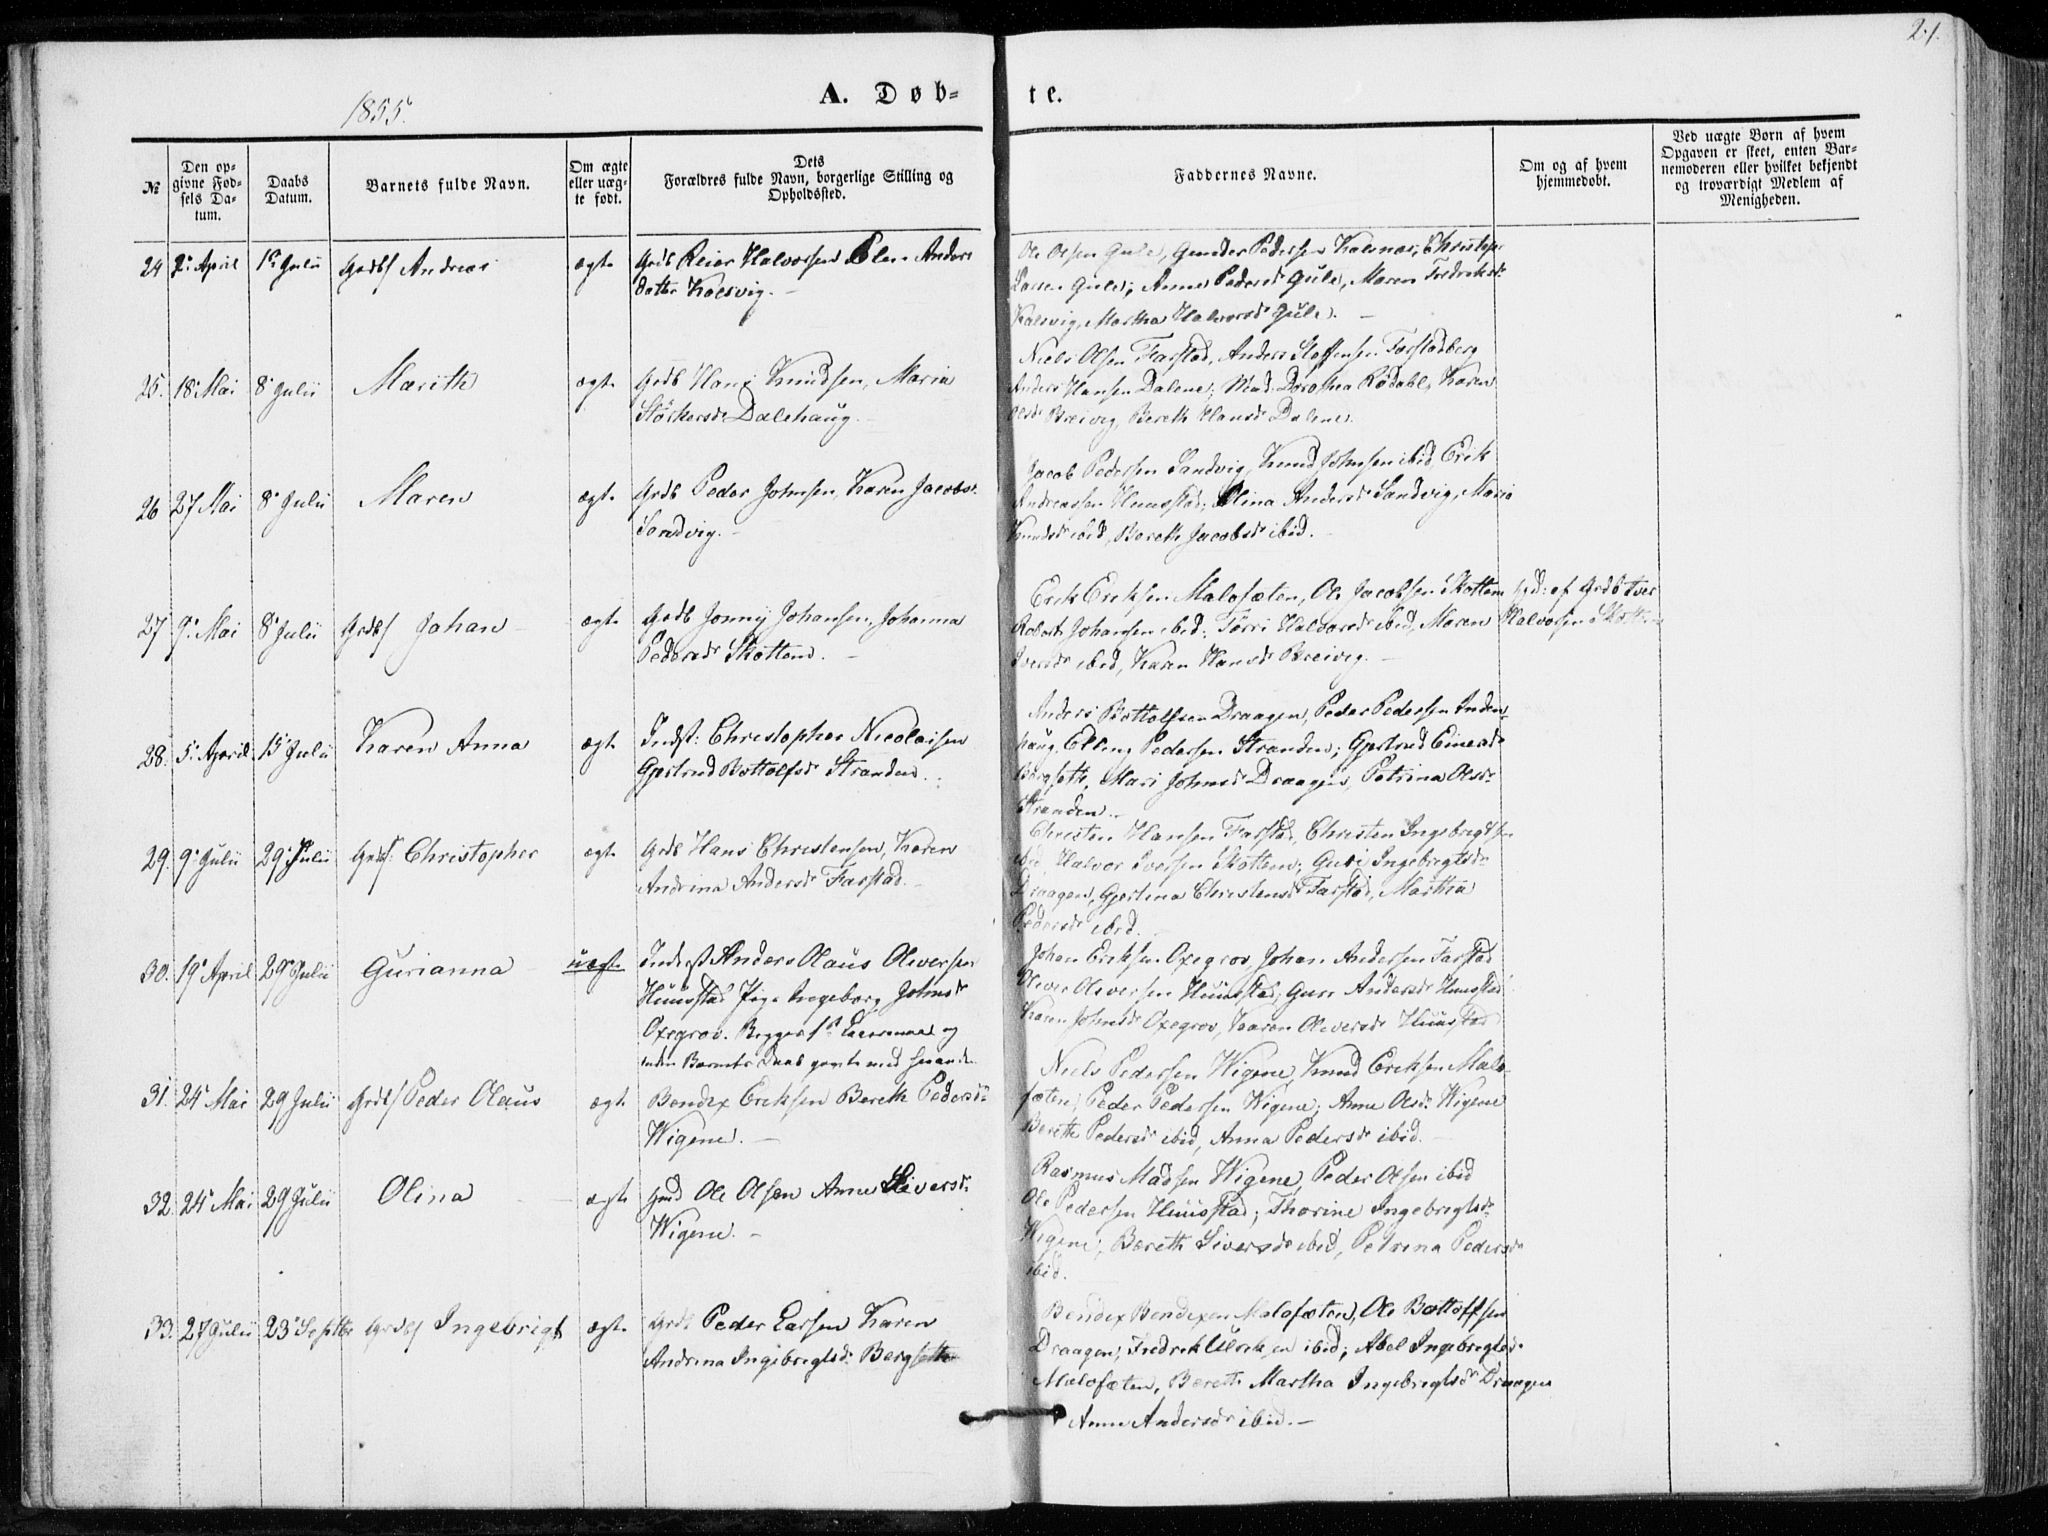 21.
1855.
A. Døb-
te.
№
Den op-
givne Fød-
sels Da-
tum.
Daabs
Datum.
Barnets fulde Navn.
Om ægte
eller uæg-
te født.
Dets
Forældres fulde Navn, borgerlige Stilling og
Opholdssted.
Faddernes Navne.
Om og af hvem
hjemmedøbt.
Ved uægte Børn af hvem
Opgaven er skeet, enten Bar-
nemoderen eller hvilket bekjendt
og troværdigt Medlem af
Menigheden.
24 April 1e Julii Andreas ægte Grdb Reier Halvorsen Anders
datter
Ole Olsen Gule, Gunder Pedersen
Larsen Gule; Anne Pedersdr Gule, Maren Fredriksdr
Martha Halvorsdr Gule.
25. 18e Mai 8e Julii Marith ægte Grdb Hans Knudsen, Maria
Størkersdr Dalehaug.
Niels Olsen Farstad, Anders Steffensen Farstadberg
Anders Hansen Dalene; Mad. Dorothea Rødahl, Karen
Olsdr Breivig, Bereth Hansdr Dalene.
26 27 Mai 8e Julii Maren ægte Grdb Peder Johnsen, Karen Jacobsdr
Sandvig.
Jacob Pedersen Sandvig, Knud Johnsen ibid, Erik
Andreassen Huusstad; Olina Andersdr Sandvig, Maria
Knudsdr ibid, Bereth Jacobsdr ibid.
27 Mai 8e Julii Johan ægte Grdb Jonny Johansen, Johanna
Pedersdr Skottem.
Erik Eriksen Malosæten, Ole Jacobsen Skottem
Johansen ibid; Halvorsdr ibid, Maren
Iversdr ibid, Karen Hansdr Breivig.
af Grdb Iver
Halvorsen
28. 5e April 15e Julii Karen Anna ægte Indst: Christopher Nicolaisen
Gjertrud Bottolfsdr Stranden.
Anders Bottolfsen Draagen, Peder Pedersen
Pedersen Stranden; Gjertrud Einarsdr
Bergsete, Mari Johnsdr Draagen, Petrina Olsdr
Stranden.
29. 9e Julii 29e Julii Christopher ægte Grdb Hans Christensen, Karen
Andrina Andersdr Farstad.
Christen Hansen Farstad, Christen Ingebrigtsen
ibid, Halvor Iversen Skottem; Ingebrigtsdr
Draagen, Gjertina Christensdr Farstad, Martha
Pedersdr ibid.
30. 19e April 29e Julii Gurianna uægte Inderst Anders Olaus Oliversen
Huusstad Pige Ingeborg Johnsdr
Oxegrov. Begges 1ste Leiermaal og
Johan Eriksen Oxegrov, Johan Andersen Farstad
Oliver Oliversen Huusstad; Andersdr Huusstad
Karen Johnsdr Oxegrov, Karen Oliversdr Huusstad
31. 24e Mai 29 Julii Peder Olaus ægte Bendix Eriksen Bereth Pedersdr
Wigene.
Niels Pedersen Wigene, Knud Eriksen Malo-
sæten, Peder Pedersen Wigene; Anne Olsdr Wigene
Bereth Pedersdr ibid, Anna Pedersdr ibid.
32. 24e Mai 29 Julii Olina ægte Ole Olsen Anne Siversdr
Wigene.
Rasmus Madsen Wigene, Peder Olsen ibid
Ole Pedersen Huusstad; Thorine Ingebrigtsdr
Wigene; Bereth Siversdr ibid, Petrina Pedersdr
ibid.
33. 27 Julii 23e Septbr Ingebrigt ægte Grdb Peder Larsen Karen
Andrina Ingebrigtsdr Bergsette
Bendix Bendixen Malosæten, Ole Bottolfsen
Draagen; Fredrik Ulriksen ibid; Abel Ingebrigtsdr
Malosæten, Bereth Martha Ingebrigtsdr Draagen
Anne Andersdr ibid.